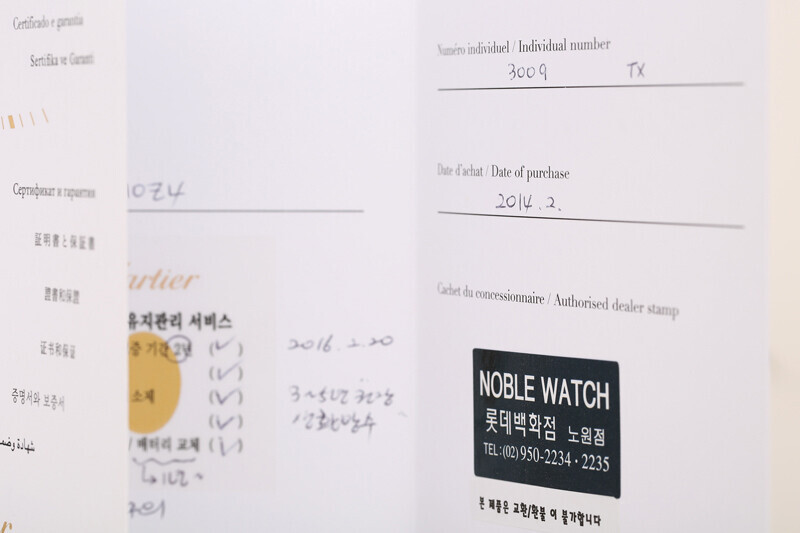 Certificado e garantia
Sertifika ve Garanti
Сертификат и гарантия
証明書と保証書
證書和保證
证书和保证
증명서와 보증서
10Z4
artier
유지관리 서비스
증 기간 2년 (✓) 2016.2.20
(✓)
소재 (✓) 3~5년
(✓) 생활방수
/ 배터리 교체 (✓)
↳ 1년~
Numéro individuel / Individual number
3009 TX
Date d'achat / Date of purchase
2014.2.
Cachet du concessionnaire / Authorised dealer stamp
NOBLE WATCH
롯데백화점 노원점
TEL:(02) 950-2234 · 2235
본 제품은 교환/환불 이 불가합니다